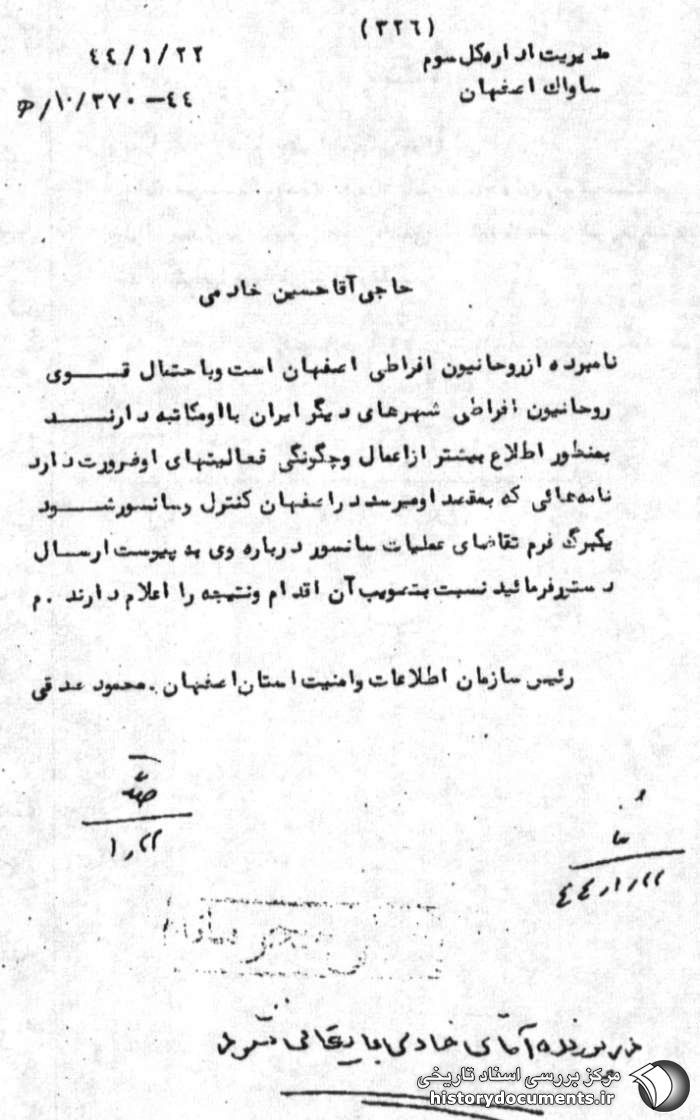 (۳۲٦)
مدیریت اداره کل سوم
۴۴/۱/۲۲
ساواک اصفهان
۱۰/۳۷۰ -۴۴/
حاجی آقا حسین خادمی
نامبرده از روحانیون افراطی اصفهان است و با حتمال قوی
روحانیون افراطی شهرهای دیگر ایران با او مکاتبه دارند
بمنظور اطلاع بیشتر از اعمال و چگونگی فعالیتهای او ضرورت دارد
نامه هائی که بمقصد او میرسد در اصفهان کنترل و سانسور شود
یکبرگ فرم تقاضای عملیات سانسور درباره وی به پیوست ارسال
دستور فرمائید نسبت بتصویب آن اقدام و نتیجه را اعلام دارند . م
رئیس سازمان اطلاعات و امنیت استان اصفهان . محمود صدقی
۱٫۲۲
۴۴٫۱٫۲۲
در پرونده آقای خادمی بایگانی شود
مرکز بررسی اسناد تاریخی
historydocuments.ir